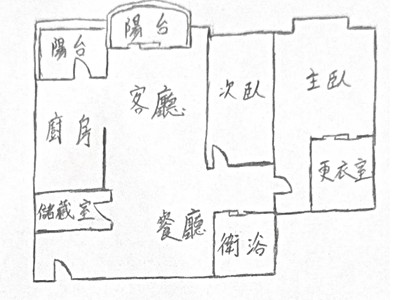 陽台
陽台
客廳
次臥
主臥
廚房
更衣室
儲藏室
餐廳
衛浴